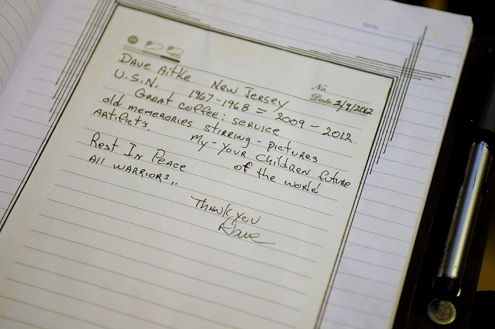 DATE
No.
Date 3/8/2012
Dave Aitke New Jersey
U.S.N. 1967-1968 = 2009 - 2012
Great coffee: service
old memerories stirring - pictures
Artifacts. My - Your Children future
of the world
Rest In Peace
All Warriors..
Thank you
Dave